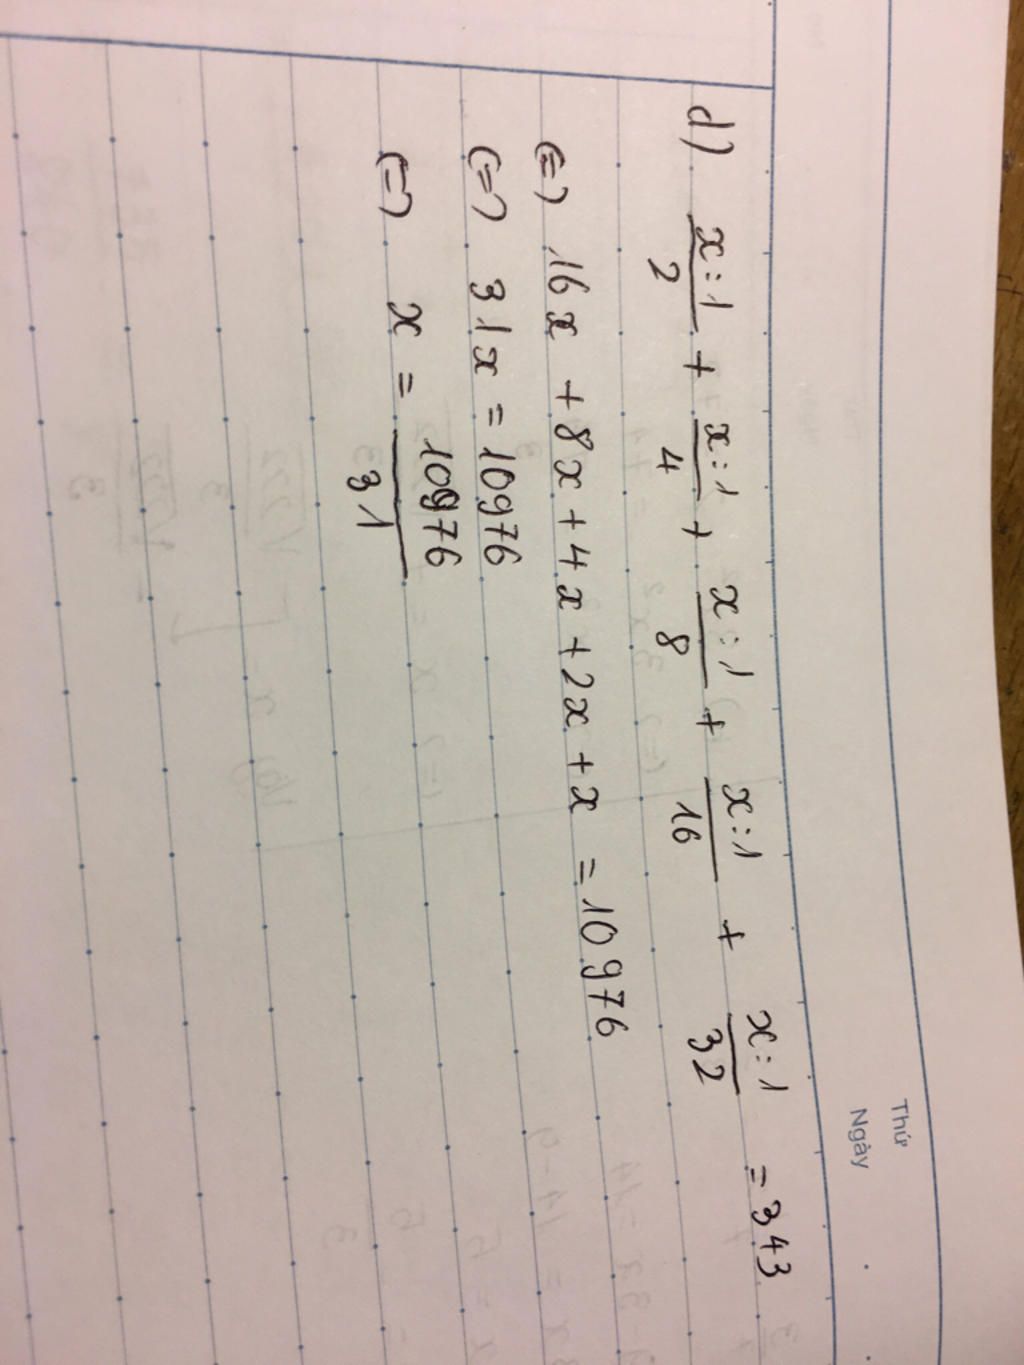 Thứ
Ngày
d) x:1/2 + x:1/4 + x:1/8 + x:1/16 + x:1/32 = 343
(=) 16x + 8x + 4x + 2x + x = 10976
(=) 31x = 10976
(=) x = 10976/31